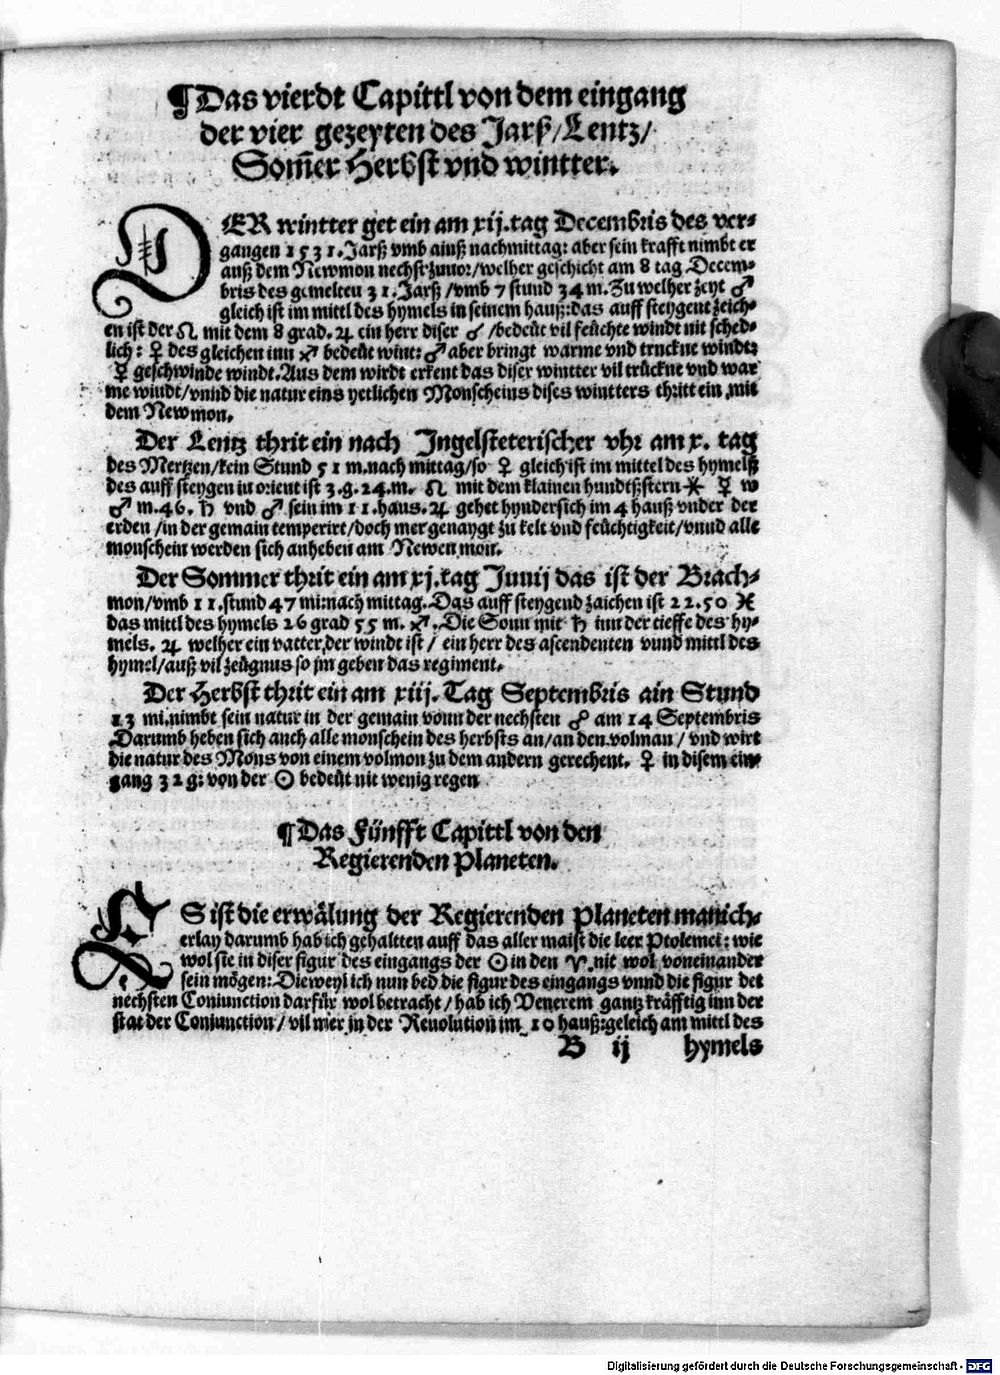 ¶Das vierdt Capittl von dem eingang
der vier gezeyten des Jarß/Lentz/
Som̄er Herbst vnd wintter.
DER wintter get ein am xij.tag Decembris des ver⸗
gangen 1531.Jarß vmb ainß nachmittag: aber sein krafft nimbt er
auß dem Newmon nechst zuuor/welher geschicht am 8 tag Decem⸗
bris des gemelten 31.Jarß/vmb 7 stund 34 m.Zu welher zeyt ♂
gleich ist im mittl des hymels in seinem hauß:das auff steygent zeich⸗
en ist der ♌ mit dem 8 grad.♃ ein herr diser ☌/bedeüt vil feüchte windt nit sched⸗
lich: ♀ des gleichen inn ♐ bedeüt wint: ♂ aber bringt warme vnd truckne windt:
☿ geschwinde windt.Aus dem wirdt erkent das diser wintter vil trückne vnd war
me windt/vnnd die natur eins yetlichen Monscheins dises wintters thritt ein mit
dem Newmon.
Der Lentz thrit ein nach Ingelsteterischer vhr am x. tag
des Mertzen/kein Stund 51 m.nach mittag/so ♀ gleich ist im mittel des hymelß
des auff steygen in orient ist 3.g.24.m. ♌ mit dem klainen hundtßstern ⚹ ☿ w
♂ m.46. ♄ vnd ♂ sein im 11.haus.♃ gehet hyndersich im 4 hauß vnder der
erden/in der gemain temperirt/doch mer genaygt zu kelt vnd feüchtigkeit/vnnd alle
monschein werden sich anheben am Newen mon.
Der Sommer thrit ein am xj.tag Junij das ist der Brach⸗
mon/vmb 11.stund 47 mi:nach mittag.Das auff steygend zaichen ist 22.50 ♓
das mittl des hymels 26 grad 55 m. ♐.Die Sonn mit ♄ inn der tieffe des hy⸗
mels. ♃ welher ein vatter,der windt ist/ ein herr des ascendenten vnnd mittl des
hymel/auß vil zeügnus so jm geben das regiment.
Der Herbst thrit ein am xiij.Tag Septembris ain Stund
13 mi.nimbt sein natur in der gemain vonn der nechsten ☍ am 14 Septembris
Darumb heben sich auch alle monschein des herbsts an/an den.volman/ vnd wirt
die natur des Mons von einem volmon zu dem andern gerechent. ♀ in disem ein⸗
gang 32g:von der ☉ bedeüt nit wenig regen
¶Das Fünfft Capittl von den
Regierenden Planeten.
ES ist die erwälung der Regierenden Planeten manich⸗
erlay darumb hab ich gehaltten auff das aller maist die leer Ptolemei: wie
wol sie in diser figur des eingangs der ☉ in den ♈.nit wol voneinander
sein mögen: Dieweyl ich nun bed die figur des eingangs vnnd die figur det
nechsten Coniunction darfür wol betracht/hab ich Venerem gantz kräfftig inn der
stat der Coniunction/vil mer in der Reuolution im 10 hauß:geleich am mittl des
B ij hymels
Digitalisierung gefördert durch die Deutsche Forschungsgemeinschaft - DFG